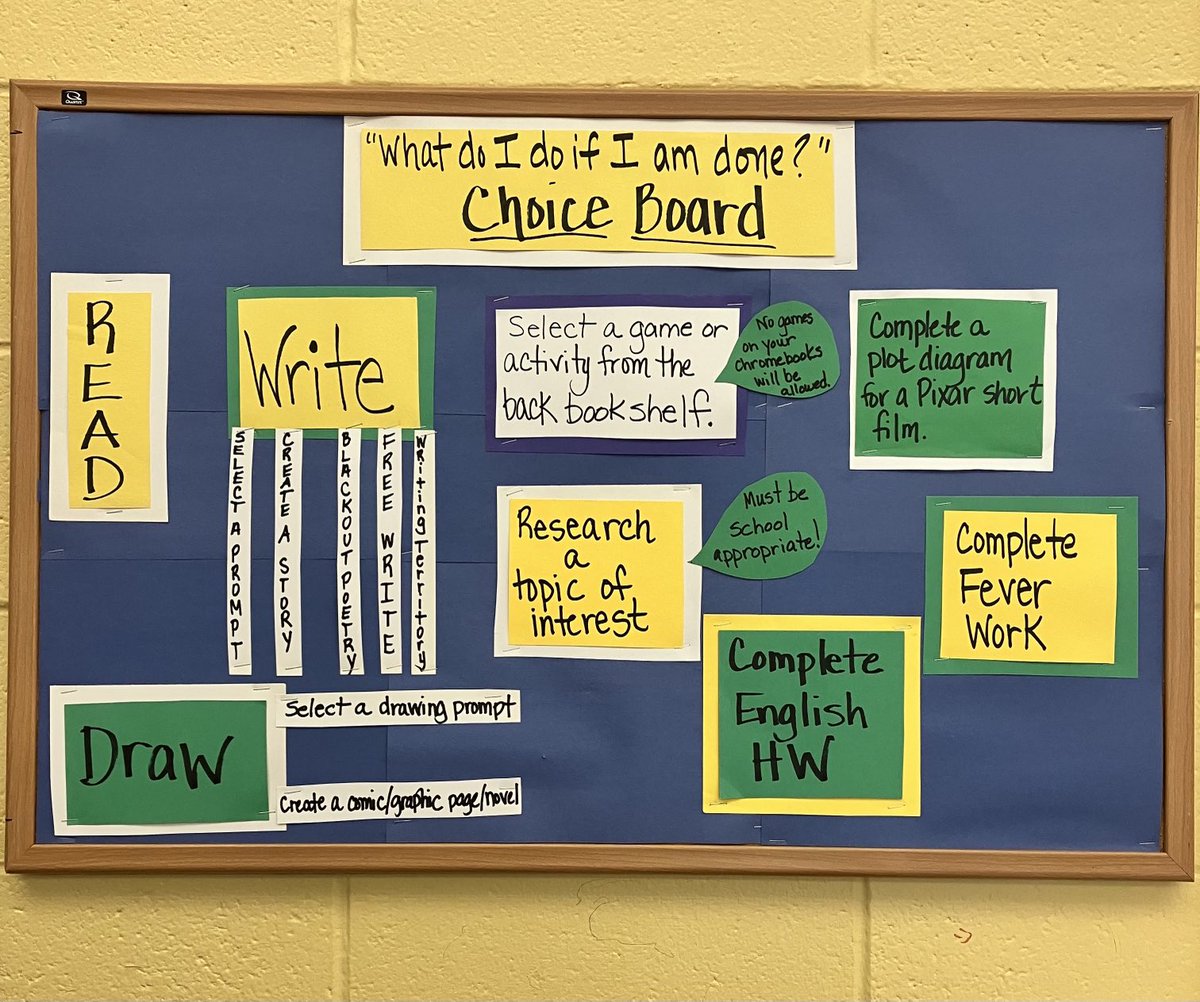 "What do I do if I am done?"
Choice Board
READ
Write
SELECT A PROMPT
CREATE A STORY
BLACKOUT POETRY
FREE WRITE
Writing Territory
Select a game or
activity from the
back bookshelf.
No games
on your
chromebooks
will be
allowed.
Complete a
plot diagram
for a Pixar short
film.
Research
a
topic of
interest
Must be
school
appropriate!
Complete
Fever
Work
Complete
English
HW
Draw
Select a drawing prompt
Create a comic/graphic page/novel